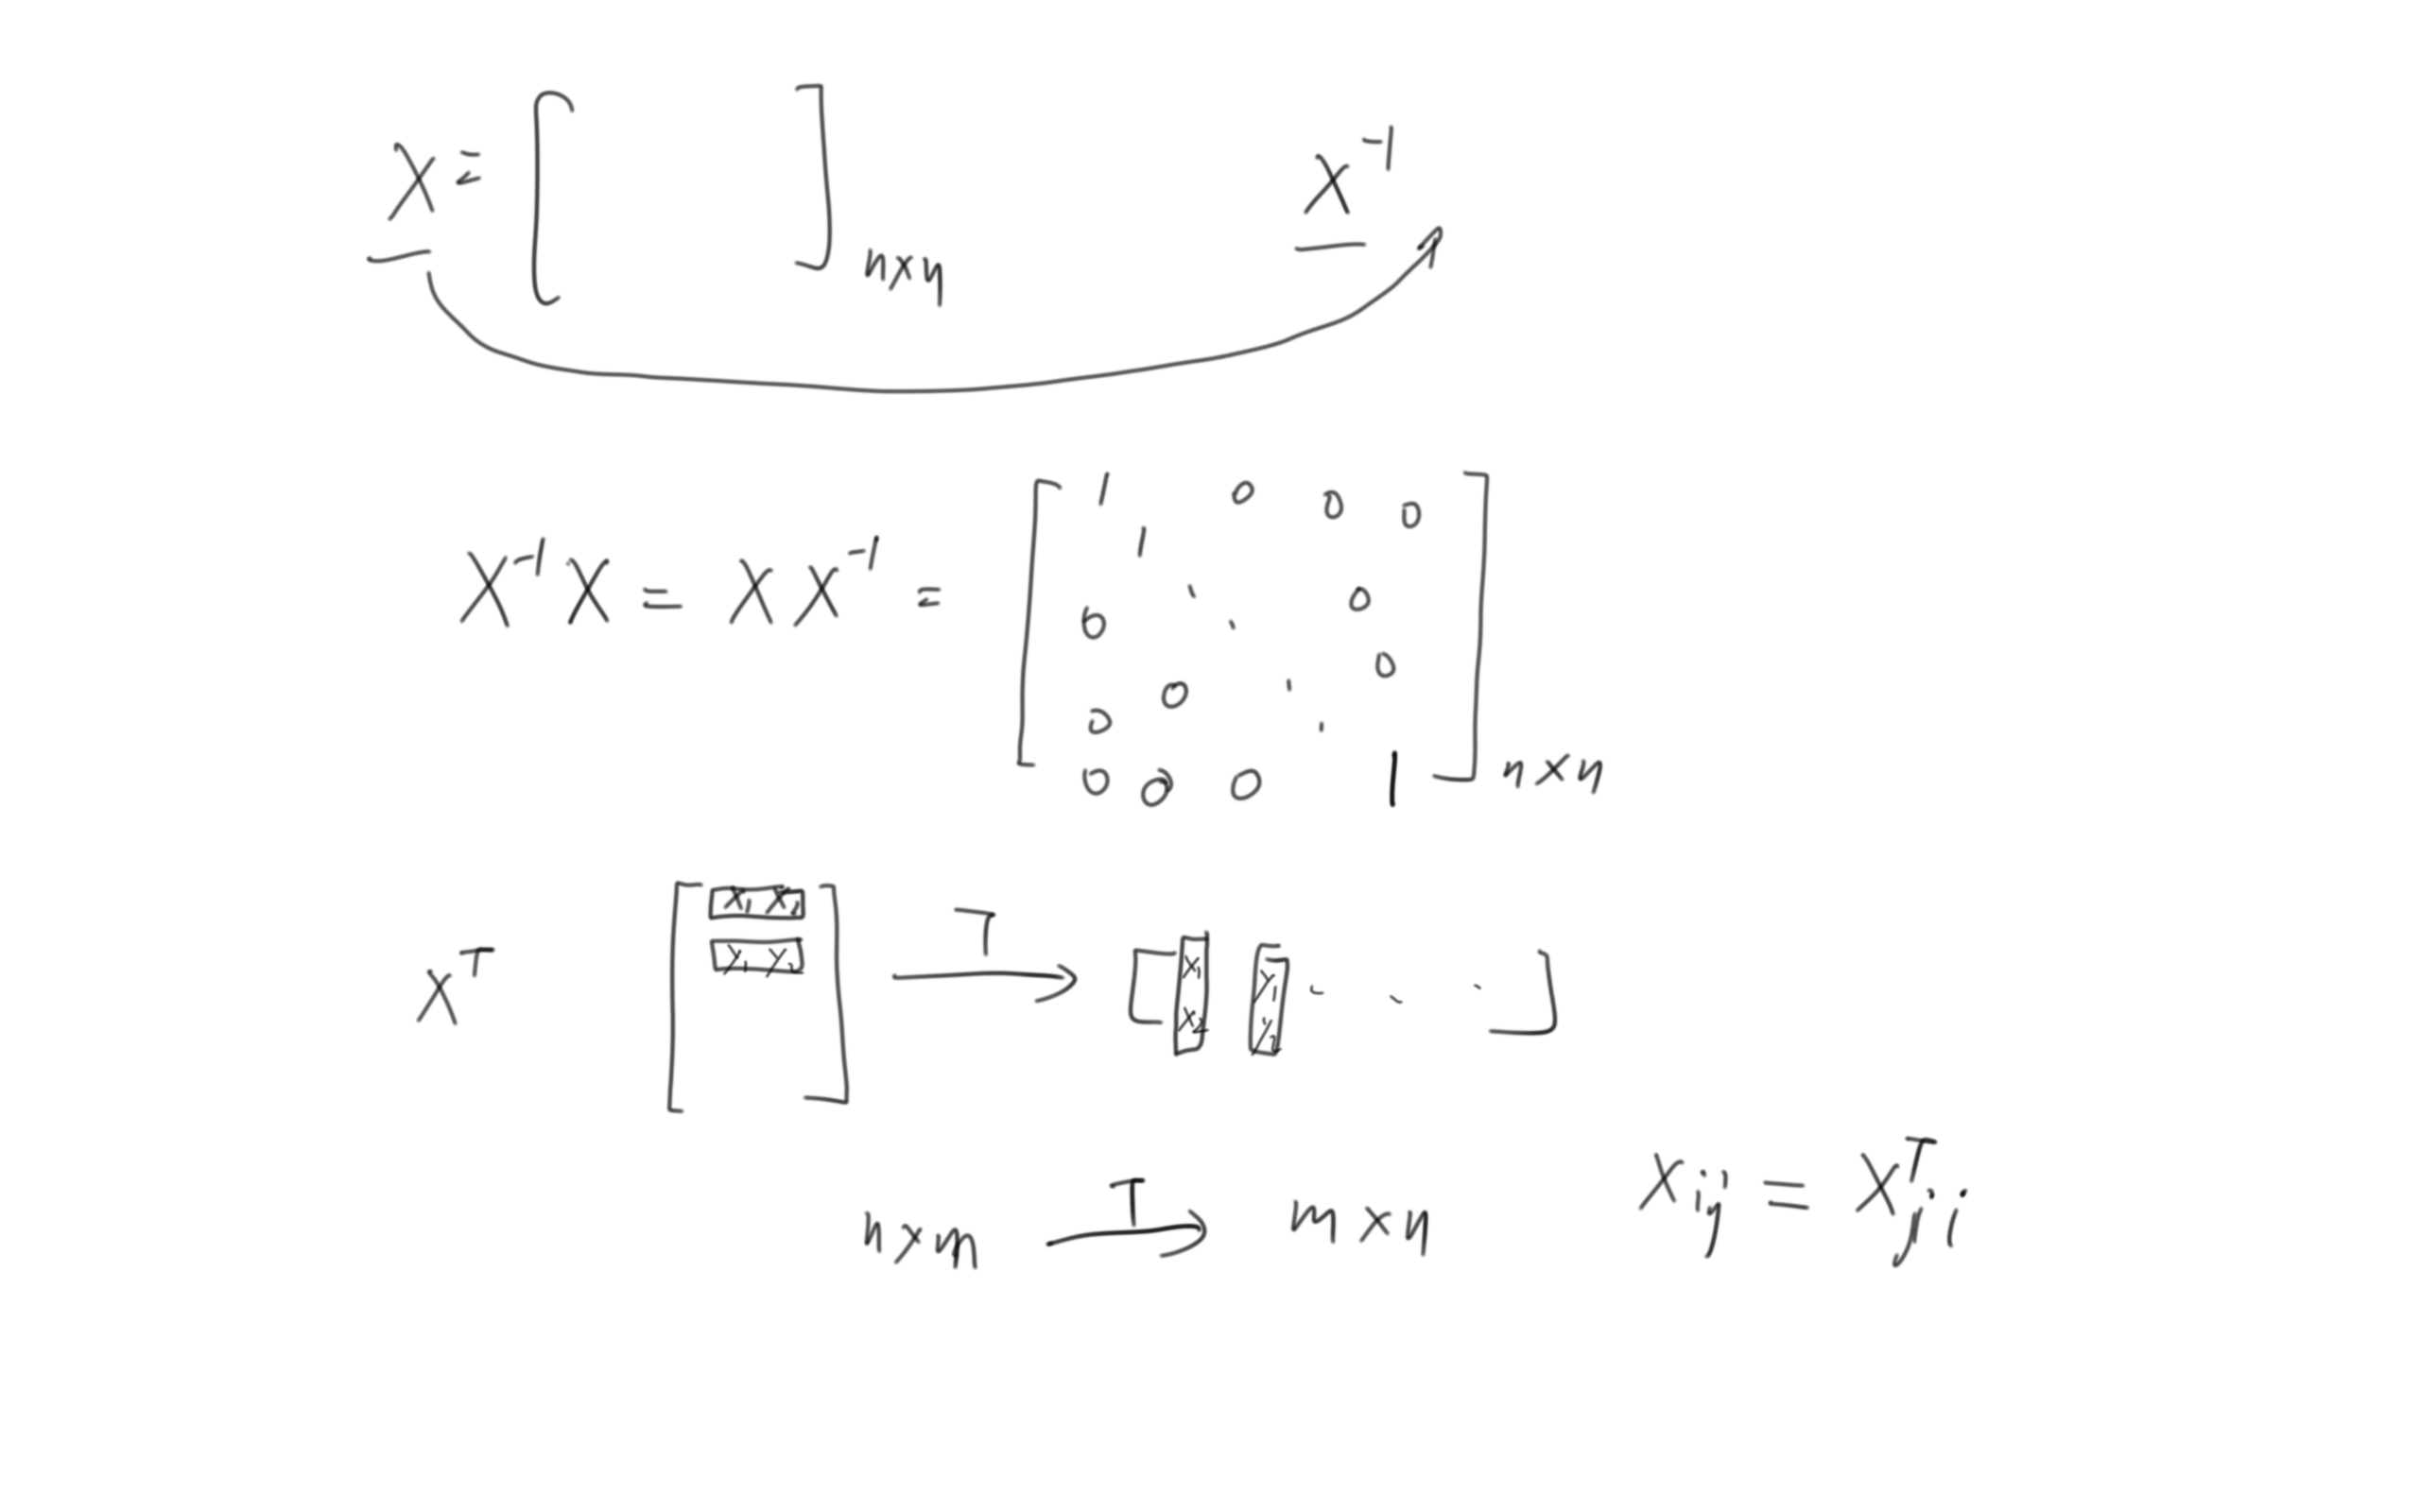 X = [ ] n×n X⁻¹
X⁻¹ X = X X⁻¹ = [ 1 0 0 0
1
0 0
0
0 0
0 0 0 1 ] n×n
Xᵀ [ X₁ X₂
Y₁ Y₂ ] T → [ X₁ Y₁ . . .
X₂ Y₂ ]
n×m T → m×n Xᵢⱼ = Xᵀⱼᵢ